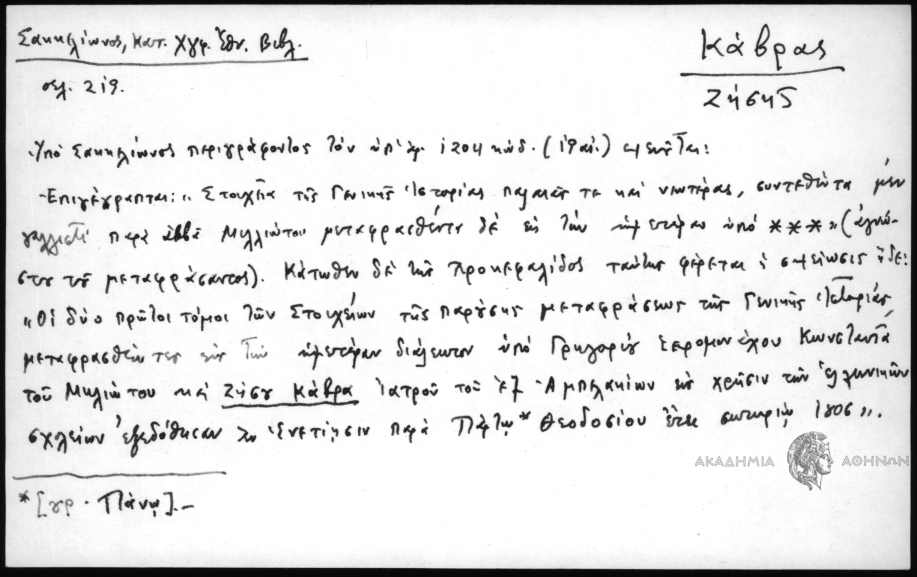 Σακκελίωνος, Κατ. Χγφ. Ἐθν. Βιβλ.
σελ. 219.
Κάβρας
Ζήσης
Ὑπό Σακκελίωνος περιγράφοντος τὸν ὑπ' ἀρ. 1204 κώδ. (19 αἰ.) σημειοῦται:
-Ἐπιγέγραπται: "Στοιχεῖα τῆς Γενικῆς Ἱστορίας παλαιᾶς τε καὶ νεωτέρας, συντεθέντα μέν
γαλλιστί παρά ἀββᾶ Μιλλιώτου μεταφρασθέντα δὲ εἰς τὴν ἡμετέραν ὑπό ***" (ἀγνώ-
στου τοῦ μεταφράσαντος). Κάτωθεν δὲ τῆς προκεφαλίδος ταύτης φέρεται ἡ σημείωσις ἥδε:
"Οἱ δύο πρῶτοι τόμοι τῶν Στοιχείων τῆς παρούσης μεταφράσεως τῆς Γενικῆς Ἱστορίας,
μεταφρασθέντες εἰς τὴν ἡμετέραν διάλεκτον ὑπό Γρηγορίου Ἱερομονάχου Κωνσταντᾶ
τοῦ Μηλιώτου καὶ Ζήσου Κάβρα Ἰατροῦ τοῦ ἐξ Ἀμπελακίων εἰς χρῆσιν τῶν Ἑλληνικῶν
σχολείων ἐξεδόθησαν ἐν Ἐνετίῃσιν παρά Πάντῳ* Θεοδοσίου ἔτει σωτηρίῳ 1806".
ΑΚΑΔΗΜΙΑ ΑΘΗΝΩΝ
*[γρ. Πάνῳ].-